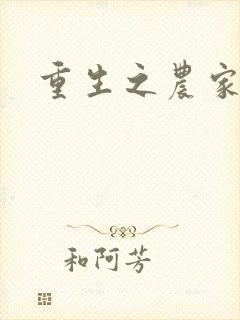 重生之農家
和阿芳